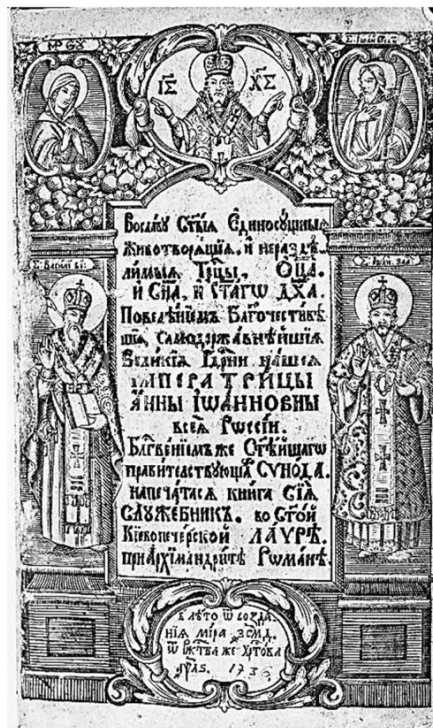 МР ѲУ
ІС ХС
Во славу Ст҃ыѧ Единосꙋщныѧ
Животворѧщиѧ, и нераздѣ-
лимыѧ Трⷪ҇цы, Ѻц҃а.
и Сн҃а, и Ст҃агѡ Дх҃а.
Повелѣнїемъ Благочестивѣ
шїѧ, самодержавнѣйшїѧ
Великїѧ Гдⷭ҇рни нашеѧ
ІМПЕРАТРИЦЫ
АННЫ ІѠАННОВНЫ
всеѧ Рѡссїи.
Блгⷭ҇венїемъ же Ст҃ѣйшагѡ
правителствꙋющагѡ СУНОДА.
напечатасѧ книга сїѧ
СЛꙋЖЕБНИКЪ. во Ст҃ой
Кїевопечерской ЛАѴРѢ.
при Архїмандрітѣ Рѡманѣ.
С. Василї
С. Іѡан Зла
в лѣто ѿ созда
нїѧ мира ҂зсмд.
ѿ рж҃тва же Хрⷭ҇това
҂аѱлѕ. 1736